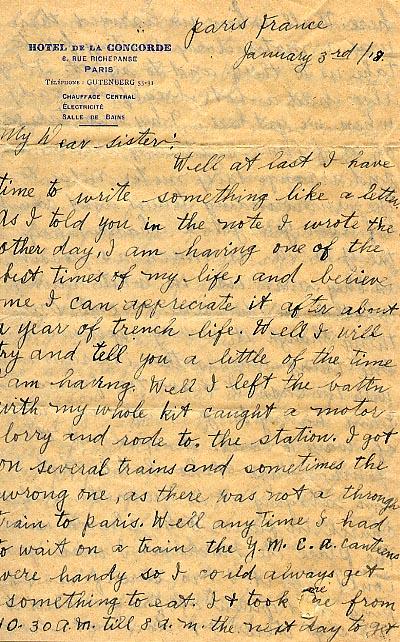 Paris France
January 3rd /18.
HOTEL DE LA CONCORDE
6, RUE RICHEPANSE
PARIS
TÉLÉPHONE : GUTENBERG 53-91
CHAUFFAGE CENTRAL
ÉLECTRICITÉ
SALLE DE BAINS
My Dear sister:
Well at last I have
time to write something like a letter.
As I told you in the note I wrote the
other day, I am having one of the
best times of my life, and believe
me I can appreciate it after about
a year of trench life. Well I will
try and tell you a little of the time
I am having. Well I left the battn
with my whole kit caught a motor
lorry and rode to. the station. I got
on several trains and sometimes the
wrong one, as there was not a through
train to paris. Well anytime I had
to wait on a train the Y.M.C.A. canteens
were handy so I could always get
something to eat. It took me from
10.30 a.m. till 8 a.m. the next day to get